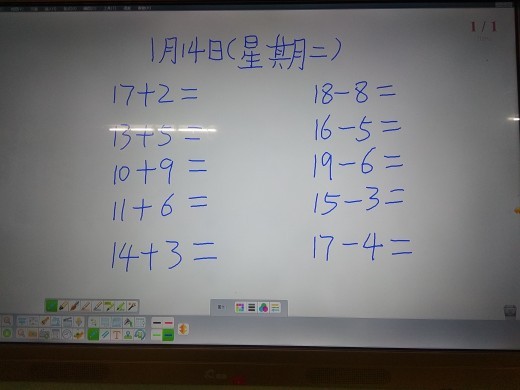 1/1
1月14日(星期二)
17+2= 18-8=
13+5= 16-5=
10+9= 19-6=
11+6= 15-3=
14+3= 17-4=